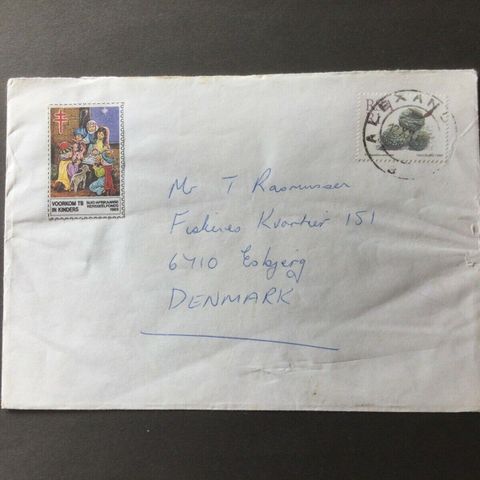 VOORKOM TB
IN KINDERS
SUID-AFRIKAANSE
KERSSEËLFONDS
1989
R
ALEXAND
Mr T Rasmussen
Fiskeres Kvarter 151
6710 Esbjerg
DENMARK